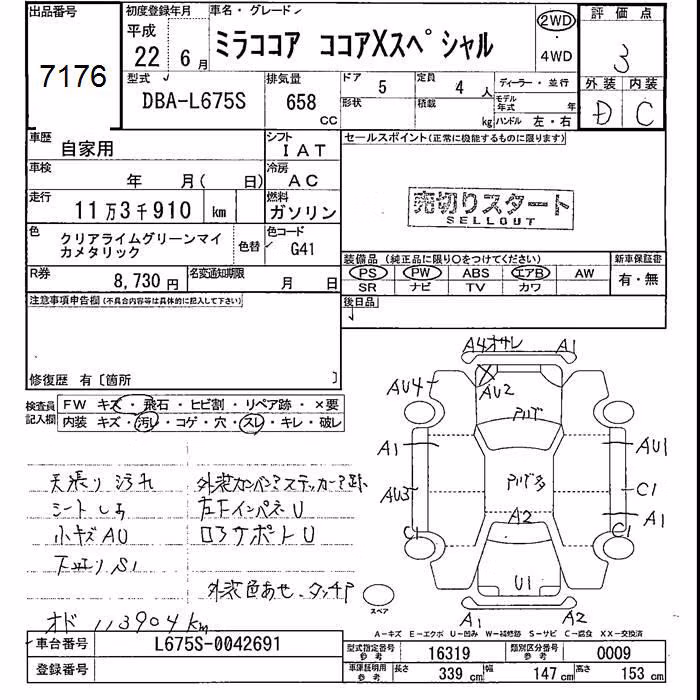 出品番号
7176
初度登録年月
平成
22 6月
車名・グレード
ミラココア ココアXスペシャル
2WD
4WD
評価点
3
外装 内装
D C
型式
DBA-L675S
排気量
658
CC
ドア
5
形状
定員
4 人
積載
kg
ディーラー・並行
モデル年式 年
ハンドル 左・右
車歴
自家用
シフト
IAT
セールスポイント(正常に機能するものに限ります)
車検
年 月( 日)
冷房
AC
走行
11万3千910 km
燃料
ガソリン
売切りスタート
SELLOUT
色
クリアライムグリーンマイカメタリック
色替
色コード
G41
装備品(純正品に限り○をつけてください)
新車保証書
PS PW ABS エアB AW
SR ナビ TV カワ
有・無
R券
8,730円
名変通知期限
月 日
注意事項申告欄(不具合内容等は具体的に記入して下さい)
後日品
修復歴 有〔箇所 〕
検査員記入欄
FW キズ・飛石・ヒビ割・リペア跡・×要
内装 キズ・汚れ・コゲ・穴・スレ・キレ・破レ
天張り汚れ
シート
小キズAU
下廻りS1
外装カンバンアステッカーア跡
左Fインパネ U
ロアサポート U
外装色あせ・タッチP
オド 113904km
A4 オサレ
A1
AU4
AU2
アバタ
A1
AU1
AU3
アバタ多
C1
A1
A2
C
C1
U1
A1
A2
スペア
A-キズ E-エクボ U-凹み W-補修跡 S-サビ C-腐食 XX-交換済
車台番号
L675S-0042691
登録番号
型式指定番号参考
16319
類別区分番号参考
0009
車庫証明用参考
長さ 339 cm
幅 147 cm
高さ 153 cm